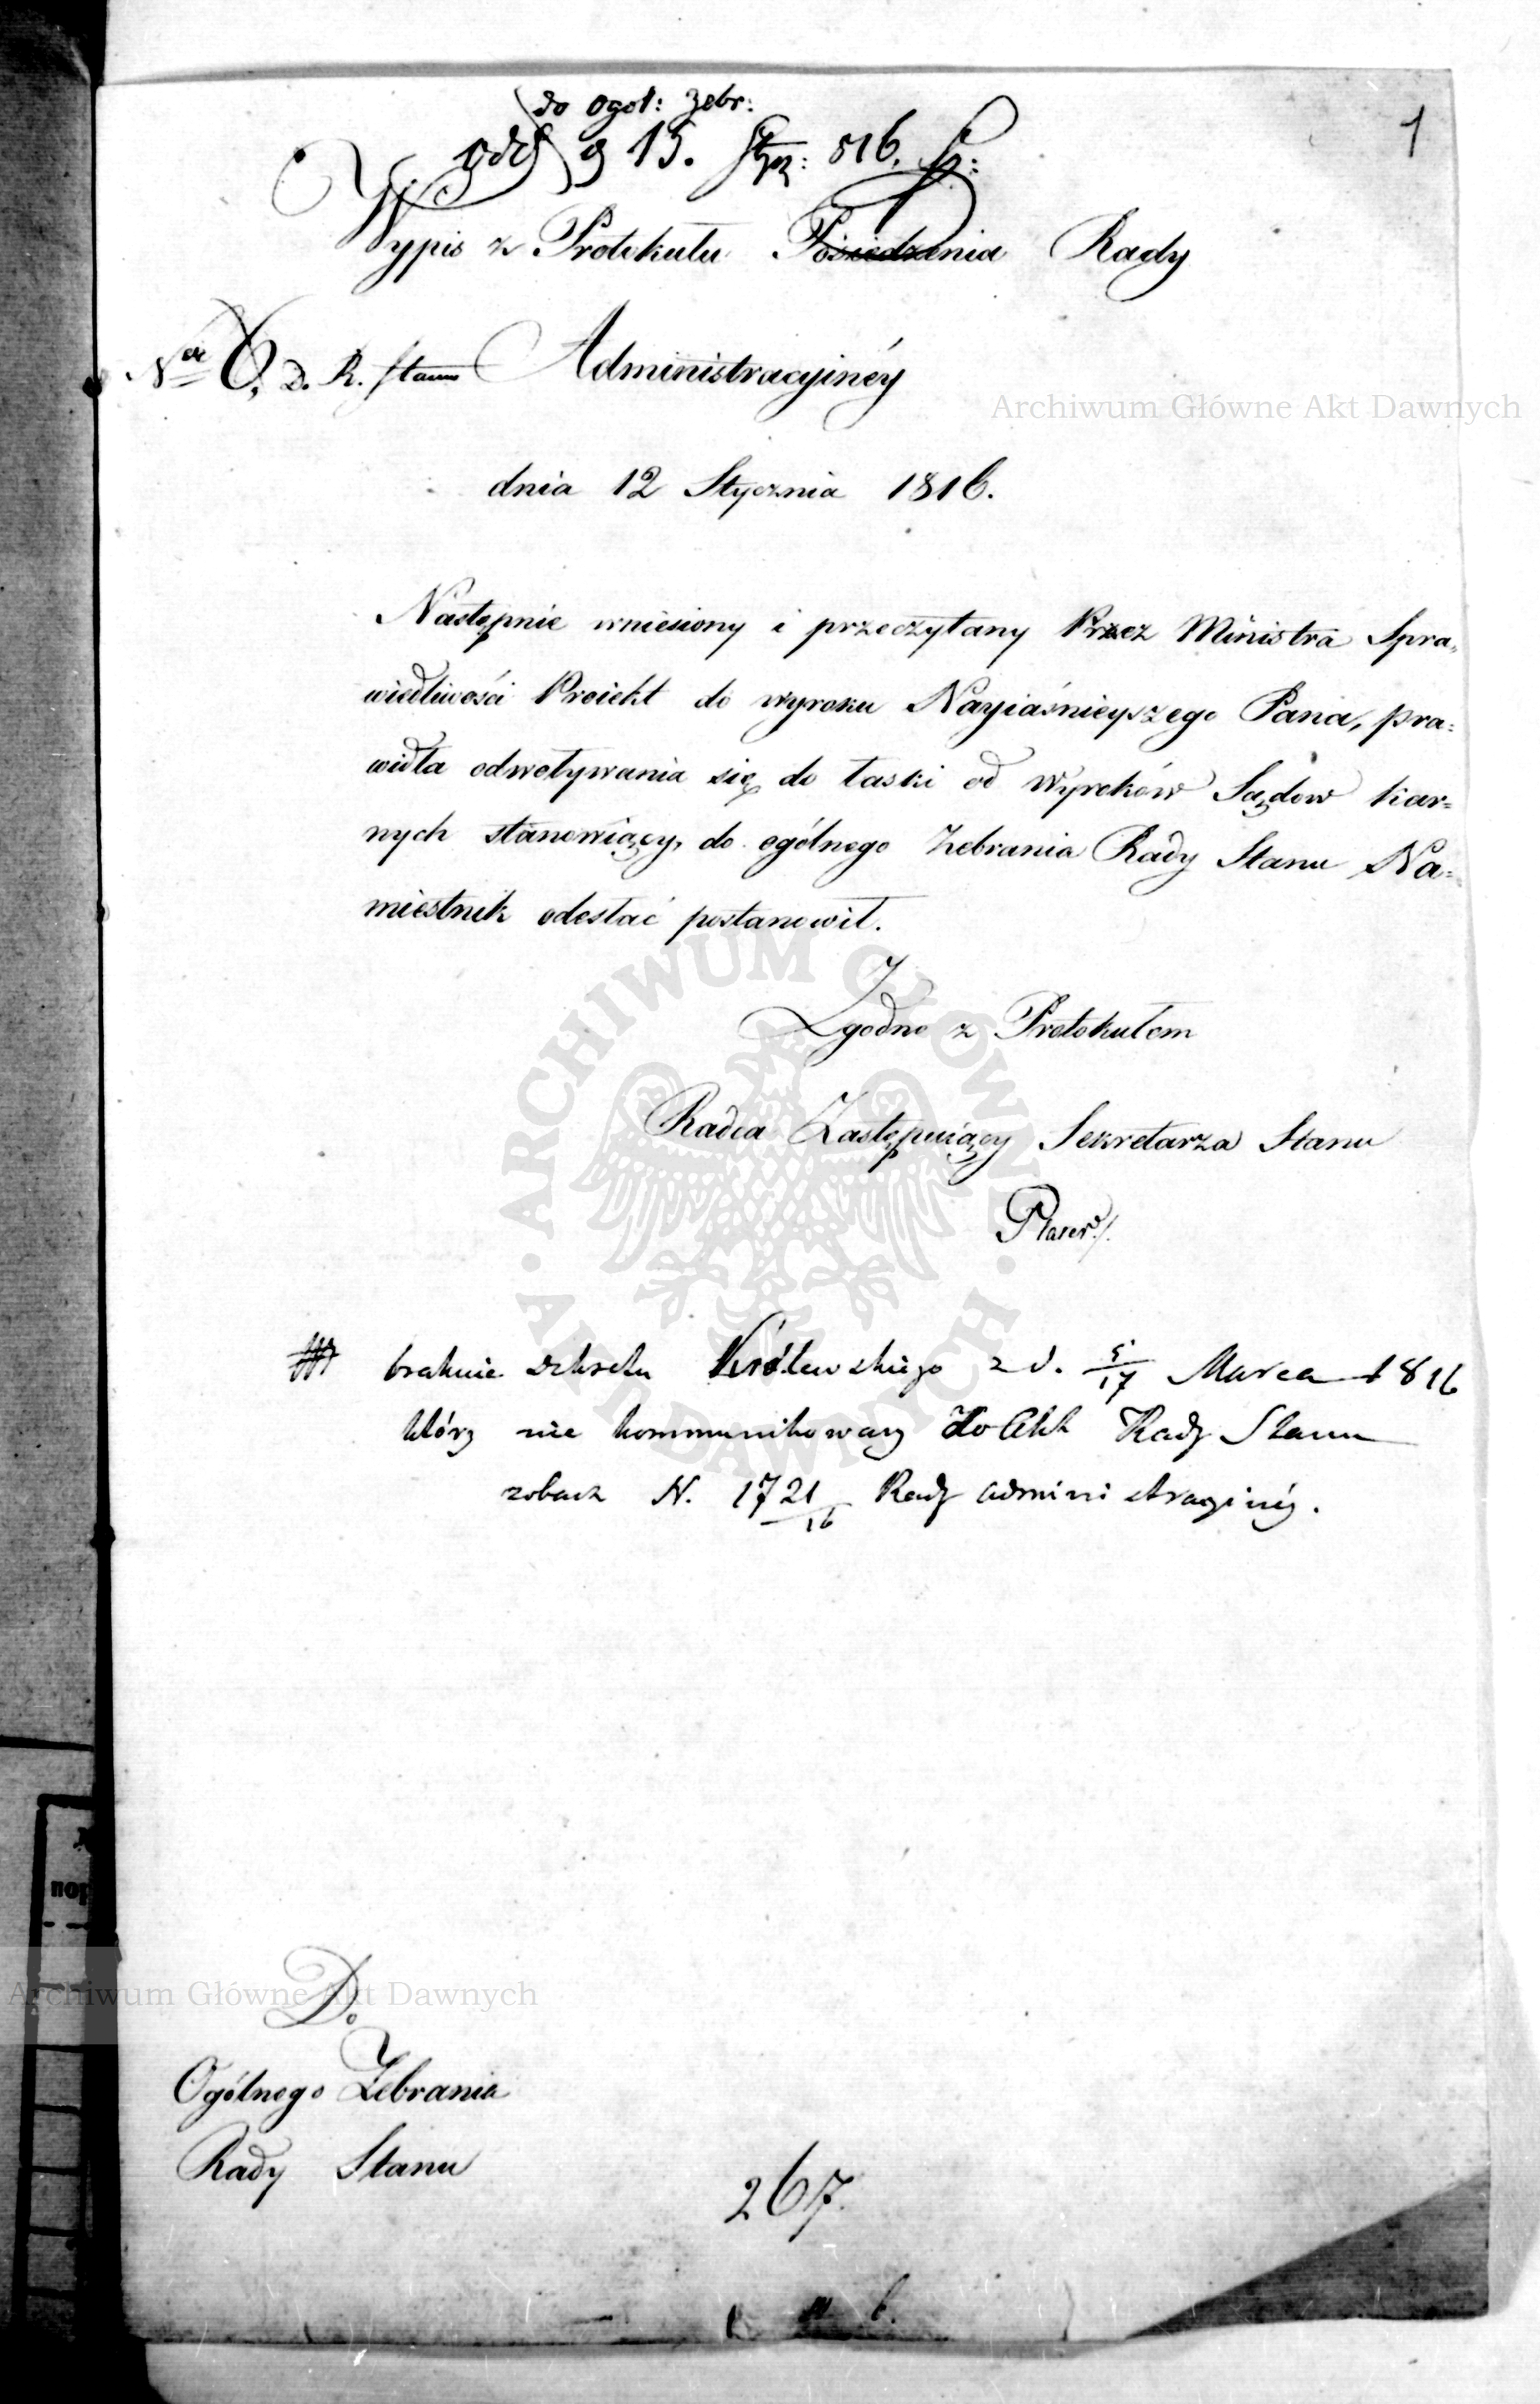 do Ogol: Zebr:
1
odd d 15. Stycz: 816.
Wypis z Protokułu Posiedzenia Rady
Ner 6, D. R. Stanu Administracyinéy
Archiwum Główne Akt Dawnych
dnia 12 Stycznia 1816.
Następnie wniesiony i przeczytany Przez Ministra Spra„
wiedliwości Proiekt do wyroku Nayiaśnieyszego Pana, pra:
widła odwoływania się do łaski od Wyroków Sądow kar=
nych stanowiący, do ogólnego Zebrania Rady Stanu Na=
miestnik odesłać postanowił.
ARCHIWUM GŁÓWNE AKT DAWNYCH
Zgodno z Protokułem
Radca Zastępuiący Sekretarza Stanu
Plater
braknie dekretu Królewskiego z d. 5/17 Marca 1816
który nie kommunikowany do Akt Rady Stanu
zobacz N. 1721/16 Rady administracyinéy.
Archiwum Główne Akt Dawnych
Do
Ogólnego Zebrania
Rady Stanu
267.
пор